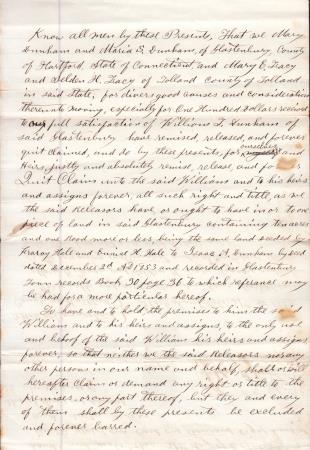 Know all men by these Presents, That we Mary
Dunham and Maria S. Dunham, of Glastenbury, County
of Hartford, State of Connecticut, and Mary E. Tracy
and Selden H. Tracy of Tolland County of Tolland
in said State, for divers good causes and considerations
thereunto moving, especially for One Hundred Dollars received
to our full satisfaction of William S. Dunham of
said Glastenbury have remised, released, and forever
quit claimed, and do by these presents, for ourselves and
Heirs, justly and absolutely remise, release, and
Quit Claim unto the said William and to his heirs
and assigns forever, all such right and title, as we
the said Releasors have or ought to have in or to one
piece of land in said Glastenbury containing ten acres
and one Rood more or less, being the same land deeded by
Hale and Hale to Isaac A. Dunham by deed
dated December 2d A.D. 1853 and recorded in Glastenbury
Town records Book 30 page 36 to which referance may
be had for a more particular hereof.
To have and to hold the premises to him the said
William and to his heirs and assigns, to the only use
and behoof of the said William his heirs and assigns
forever, so that neither we the said Releasors nor any
other persons in our name and behalf, shall or will
hereafter Claim or demand any right or title to the
premises, or any part thereof, but they and every
of them shall by these presents be excluded
and forever barred.